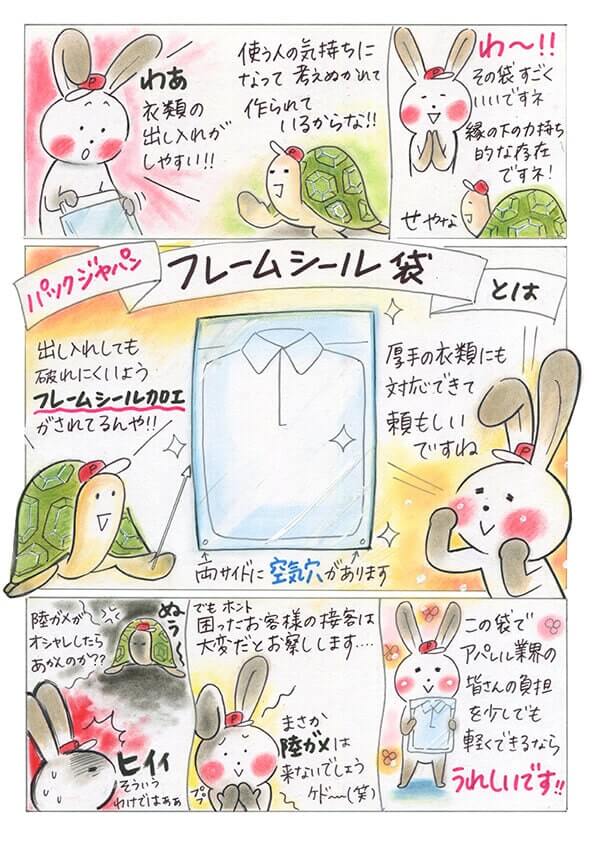 わあ
衣類の
出し入れが
しやすい!!
使う人の気持ちに
なって考えぬかれて
作られて
いるからな!!
わ〜!!
その袋すごく
いいですネ
縁の下の力持ち
的な存在
ですネ!
せやな
パックジャパン
フレームシール袋
とは
出し入れしても
破れにくいよう
フレームシール加工
がされてるんや!!
厚手の衣類にも
対応できて
頼もしい
ですね
両サイドに空気穴があります
陸ガメが
オシャレしたら
あかんのか??
ぬぅ〜
ヒイィ
そういう
わけではぁぁ
でもホント
困ったお客様の接客は
大変だとお察しします....
まさか
陸ガメは
来ないでしょう
ケド〜(笑)
ププ
この袋で
アパレル業界の
皆さんの負担
を少しでも
軽くできるなら
うれしいです!!
P
P
P
P
P
P